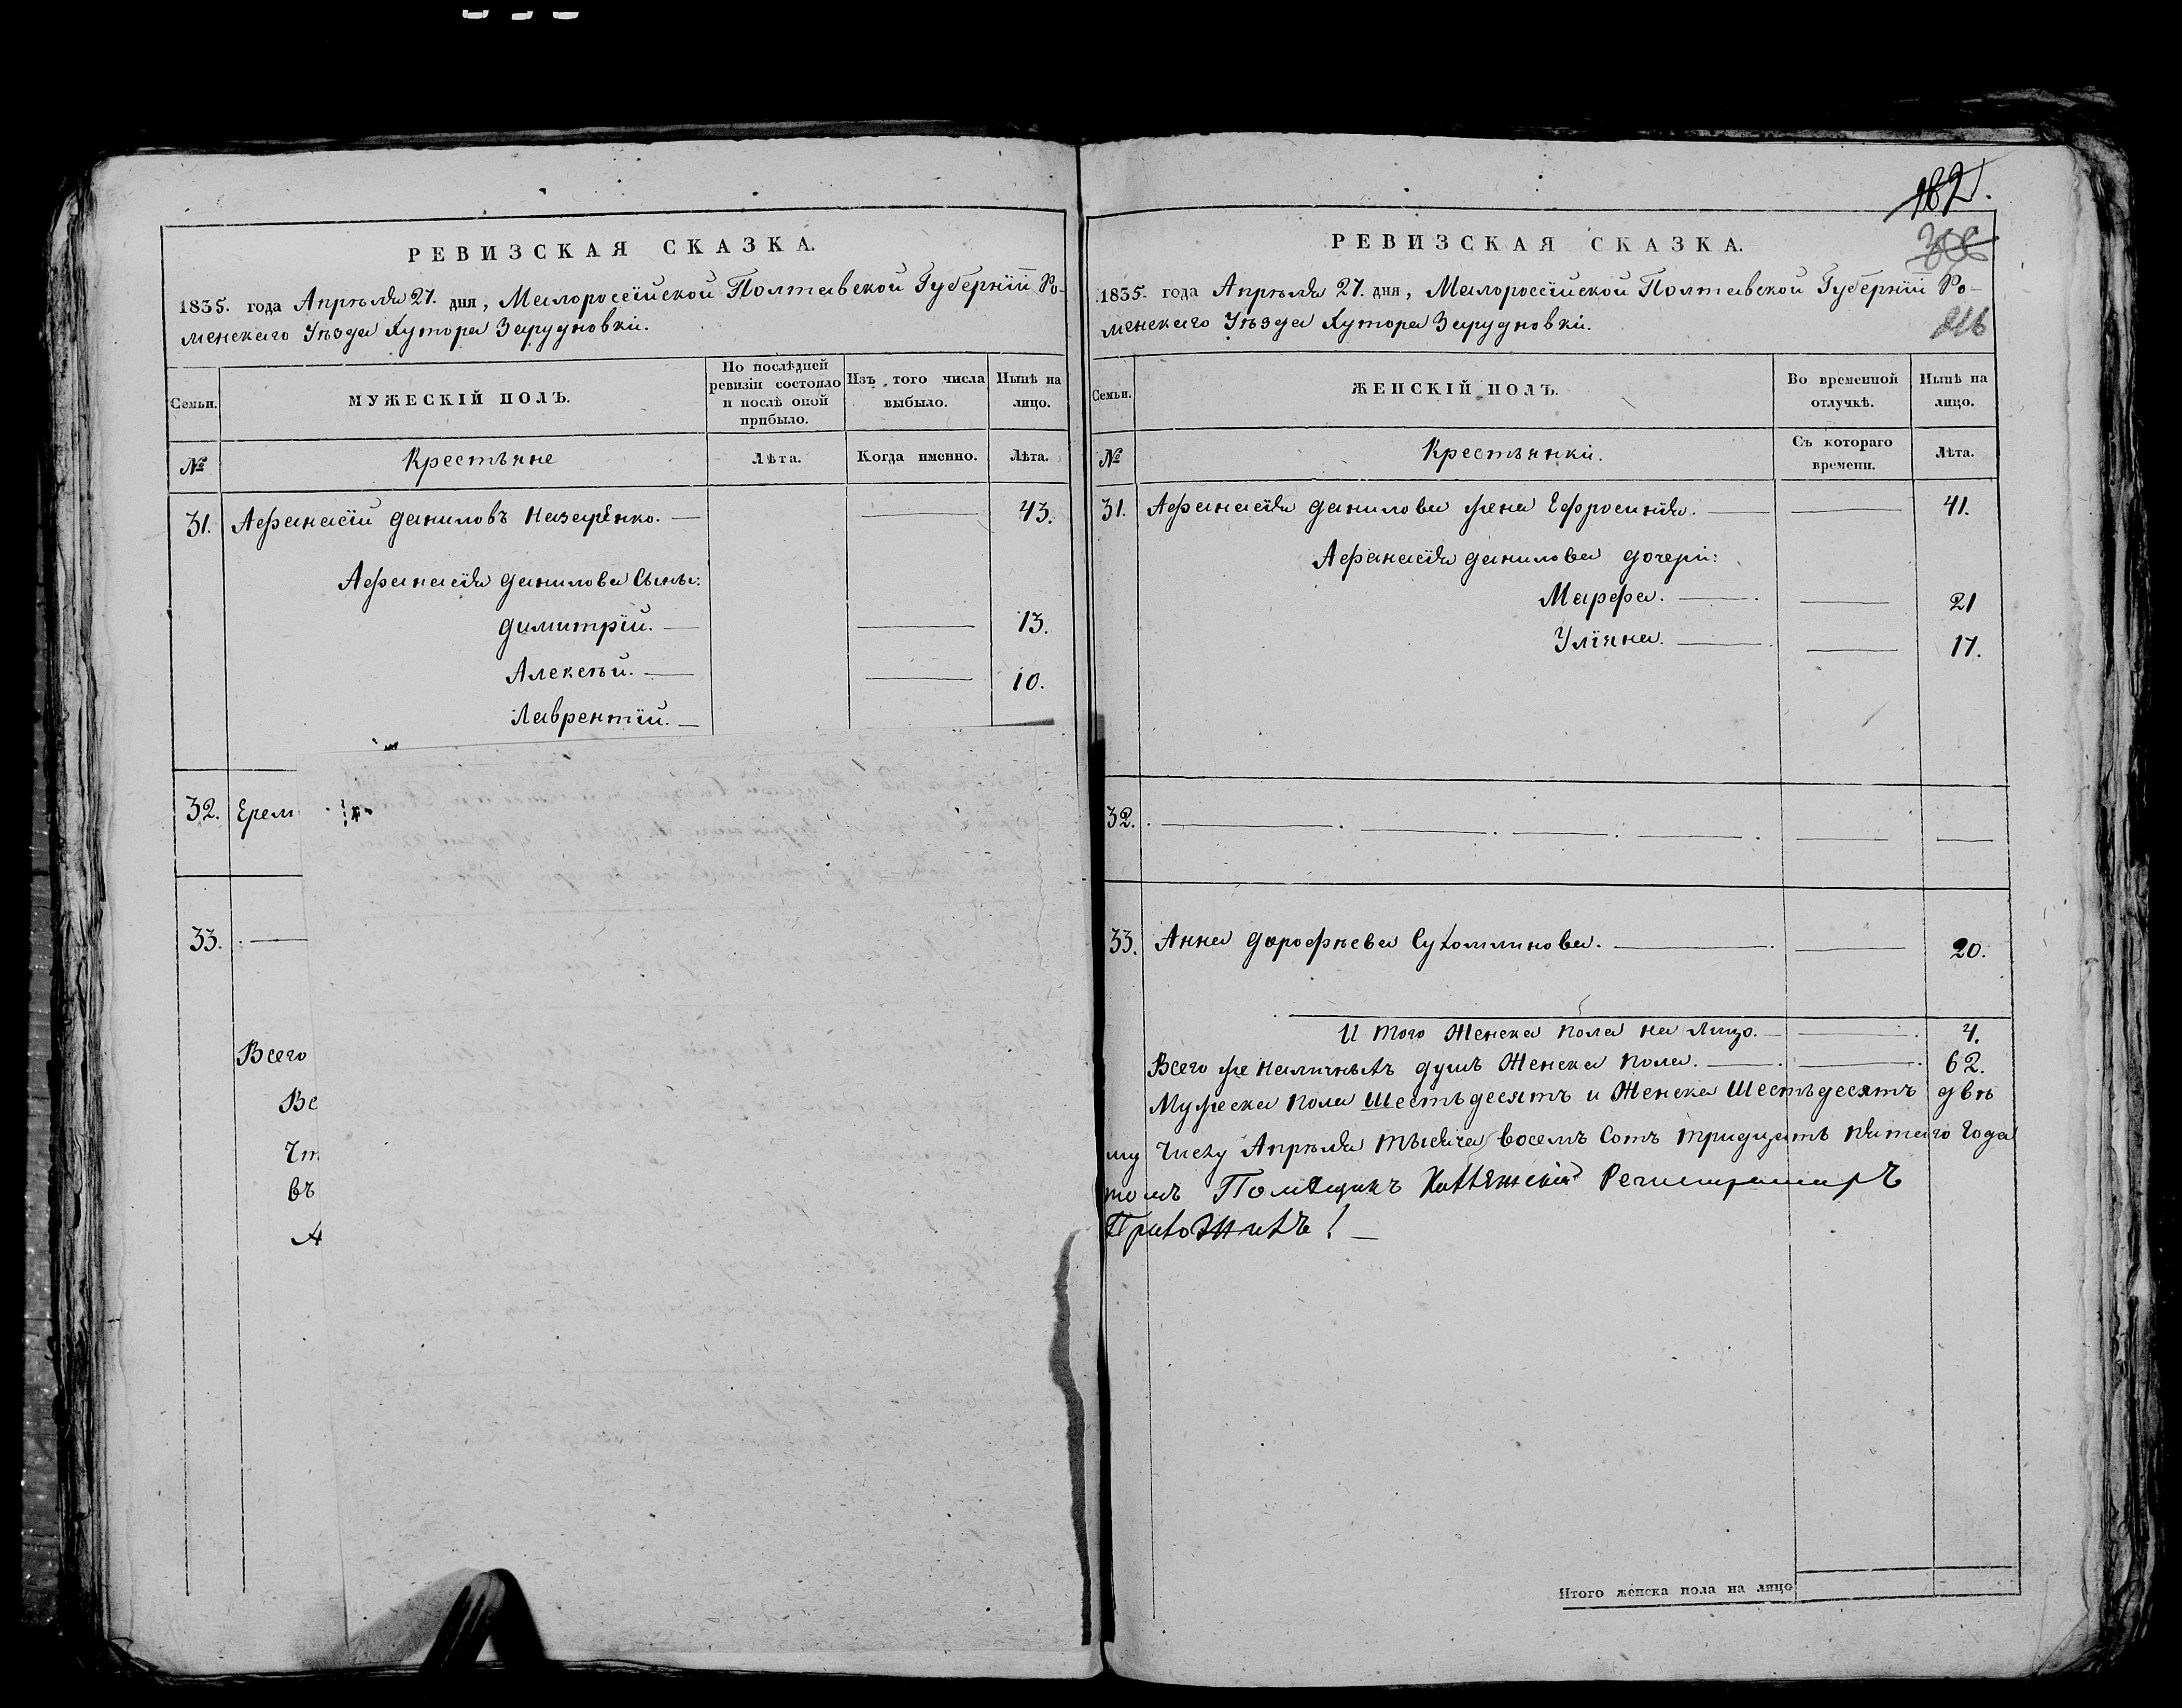 РЕВИЗСКАЯ СКАЗКА.
1835. года Апрѣля 27. дня, Малоросѣйской Полтавской Губерніи Ро-
менскаго Уѣзда Хутора Зарудновки.
Семьи.
МУЖЕСКІЙ ПОЛЪ.
По послѣдней ревизіи состояло и послѣ оной прибыло.
Изъ того числа выбыло.
Нынѣ на лицо.
№
Крестьяне
Лѣта.
Когда именно.
Лѣта.
31. Афанасій Даниловъ Назаренко. — 43.
Афанасія Данилова Сыны:
Димитрій. — 13.
Алексѣй. — 10.
Лаврентій. —
32. Ерем
33. —
Всего
Вс
Чт
въ
А
182.
РЕВИЗСКАЯ СКАЗКА.
1835. года Апрѣля 27. дня, Малоросѣйской Полтавской Губерніи Ро-
менскаго Уѣзда Хутора Зарудновки.
216
Семьи.
ЖЕНСКІЙ ПОЛЪ.
Во временной отлучкѣ.
Нынѣ на лицо.
№
Крестьянки.
Съ котораго времени.
Лѣта.
31. Афанасія Данилова жена Ефросинія. — 41.
Афанасія Данилова дочери:
Марфа. — 21
Уліяна. — 17.
32. —
33. Анна Дорофѣева Сухомлинова. — 20.
И того Женска пола на лицо. — 4.
Всего же наличныхъ душъ Женска пола. — 62.
Мужеска пола Шестьдесятъ и Женска Шестьдесятъ двѣ
му числу Апрѣля тысяча восемъ сотъ тридцать пятаго года
томъ Помѣщикъ Регистраторъ
Итого женска пола на лицо